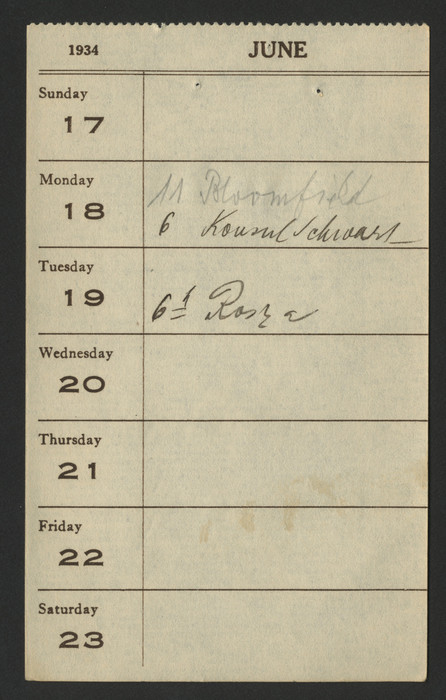 1934 JUNE
Sunday
17
Monday
18
11 Bloomfield
6 Konsul Schwarz
Tuesday
19
6 Rosza
Wednesday
20
Thursday
21
Friday
22
Saturday
23